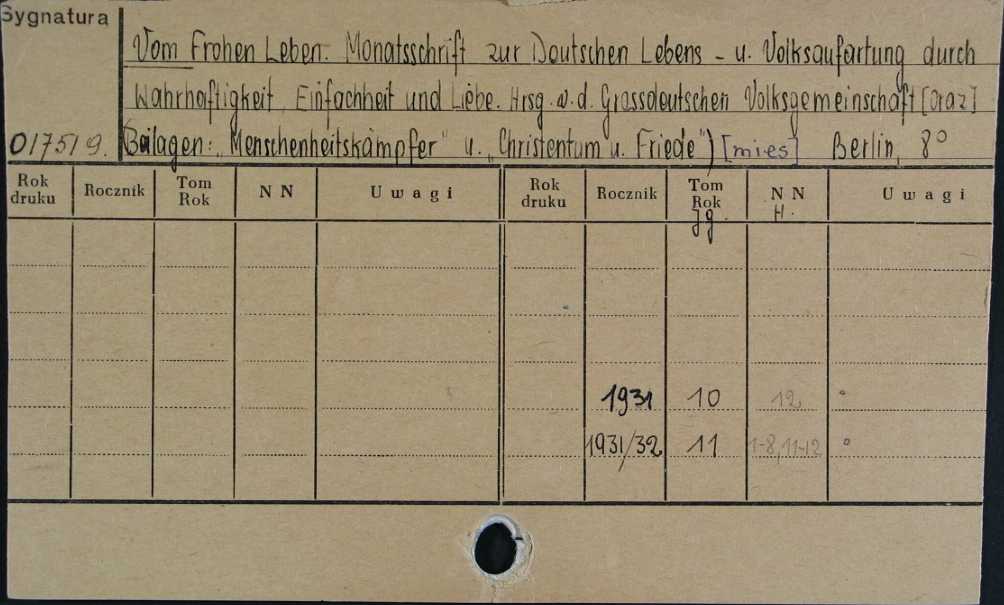 Sygnatura
Vom Frohen Leben. Monatsschrift zur Deutschen Lebens - u. Volksaufartung durch
Wahrhaftigkeit, Einfachheit und Liebe. Hrsg. v. d. Grossdeutschen Volksgemeinschaft [oraz]
017519. Beilagen: "Menschenheitskämpfer" u. "Christentum u. Friede") [mies] Berlin, 8°
Rok druku Rocznik Tom Rok N N Uwagi Rok druku Rocznik Tom Rok N N Uwagi
Jg. H.
1931 10 12
1931/32 11 1-8, 11-12